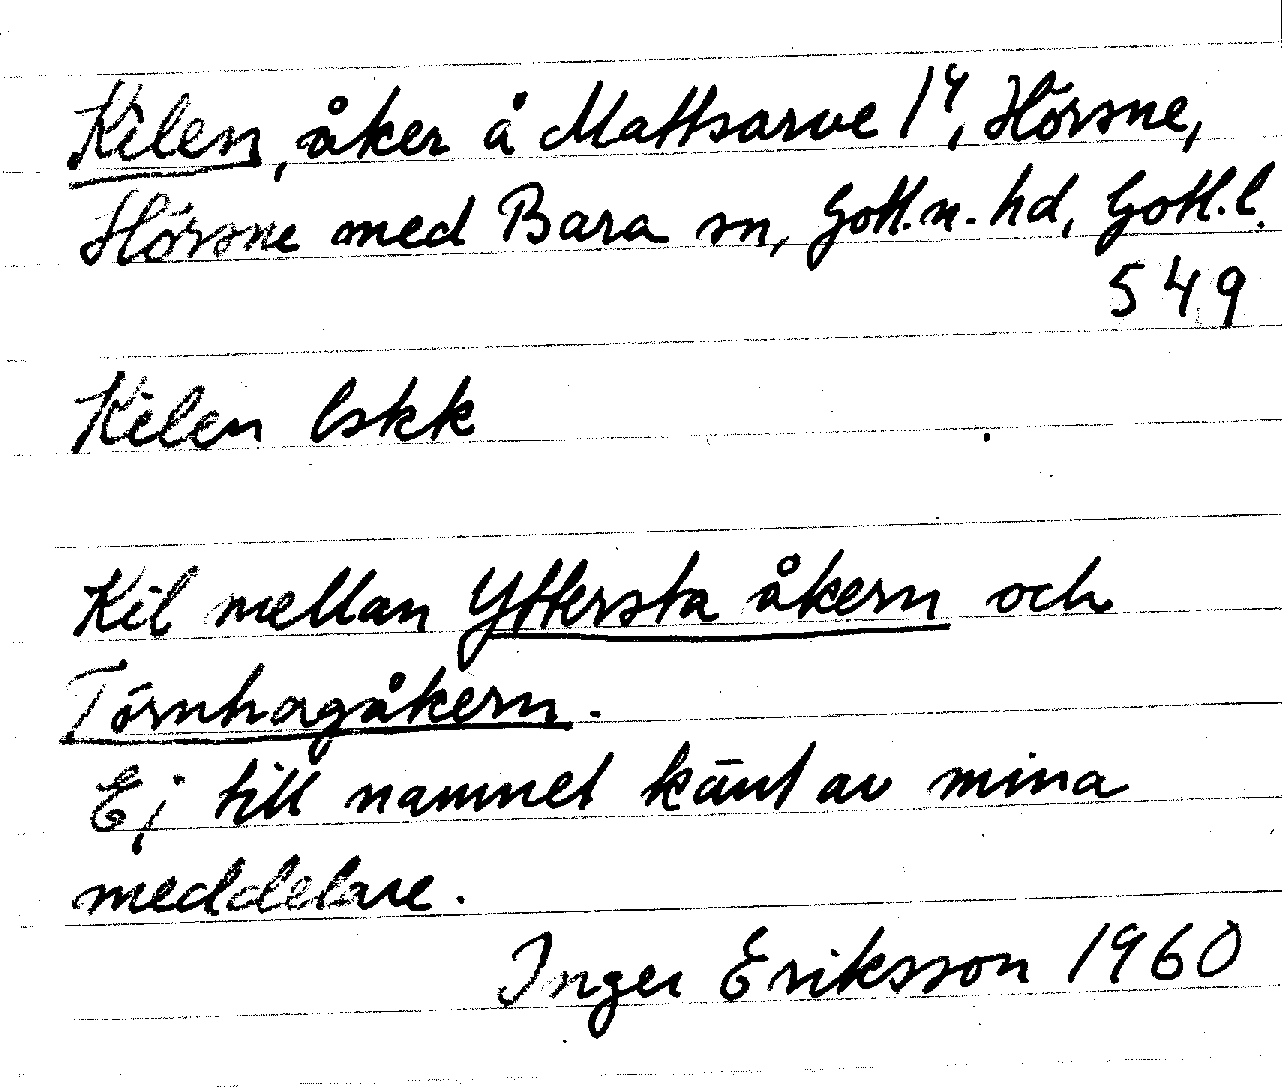 Kilen, åker å Mattsarve 1⁴, Hörsne,
Hörsne med Bara sn, Gotl. n. hd, Gotl. l.
549
Kilen lskk
Kil mellan Yttersta åkern och
Törnhagåkern.
Ej till namnet känt av mina
meddelare.
Inger Eriksson 1960